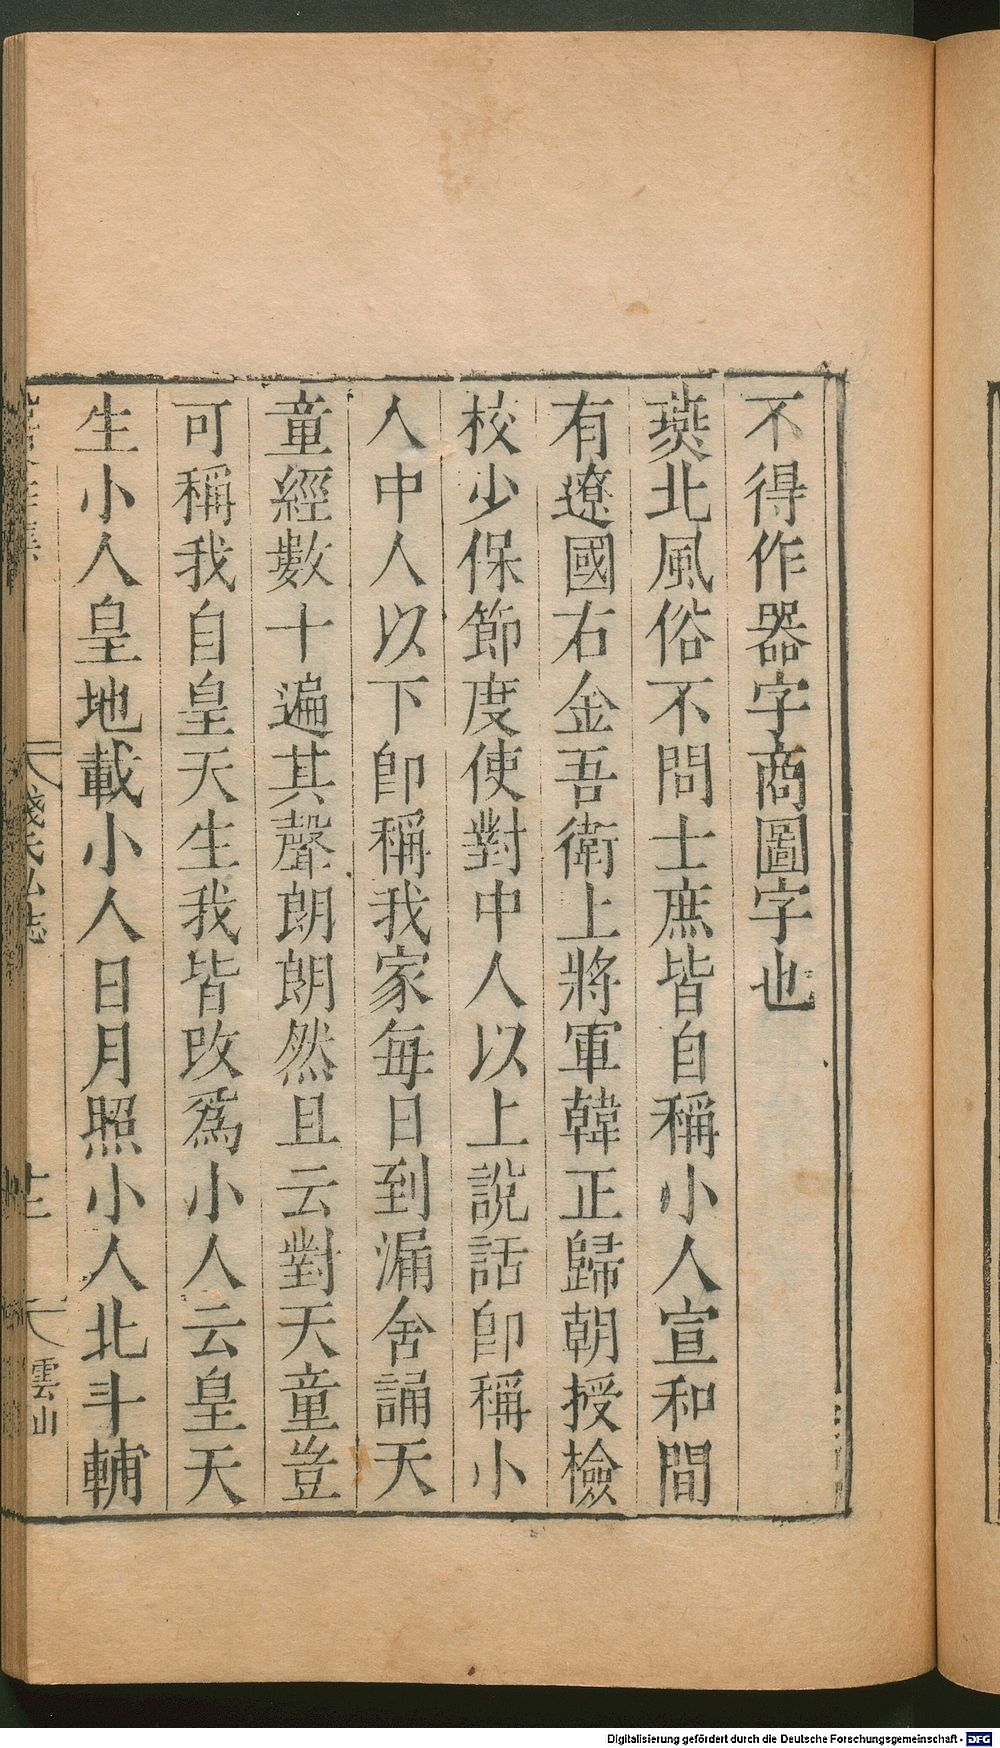 不得作器字商圖字也
燕北風俗不問士庶皆自稱小人宣和間
有遼國右金吾衛上將軍韓正歸朝授檢
校少保節度使對中人以上說話卽稱小
人中人以下卽稱我家每日到漏舍誦天
童經數十遍其聲朗朗然且云對天童豈
可稱我自皇天生我皆改爲小人云皇天
生小人皇地載小人日月照小人北斗輔
錢氏私志
雲山
Digitalisierung gefördert durch die Deutsche Forschungsgemeinschaft - DFG